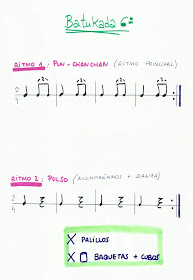 Batukada
RITMO 1: PUN-CHANCHAN (RITMO PRINCIPAL)
3 3 3 3
2
4
RITMO 2: PULSO (ACOMPAÑAMOS + DANZA)
2
4
X PALILLOS
X BAQUETAS + CUBOS